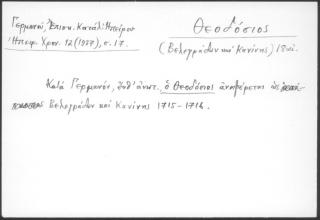 Γερμανού, Επισκ. Κατάλ. Ηπείρου
Ηπειρ. Χρον. 12 (1937), σ. 17.
Θεοδόσιος
(Βελεγράδων καί Κανίνης) 18 αἰ.
Κατά Γερμανόν, ἔνθ' ἀνωτ. ὁ Θεοδόσιος ἀναφέρεται ὡς
Βελεγράδων καί Κανίνης 1715-1716.